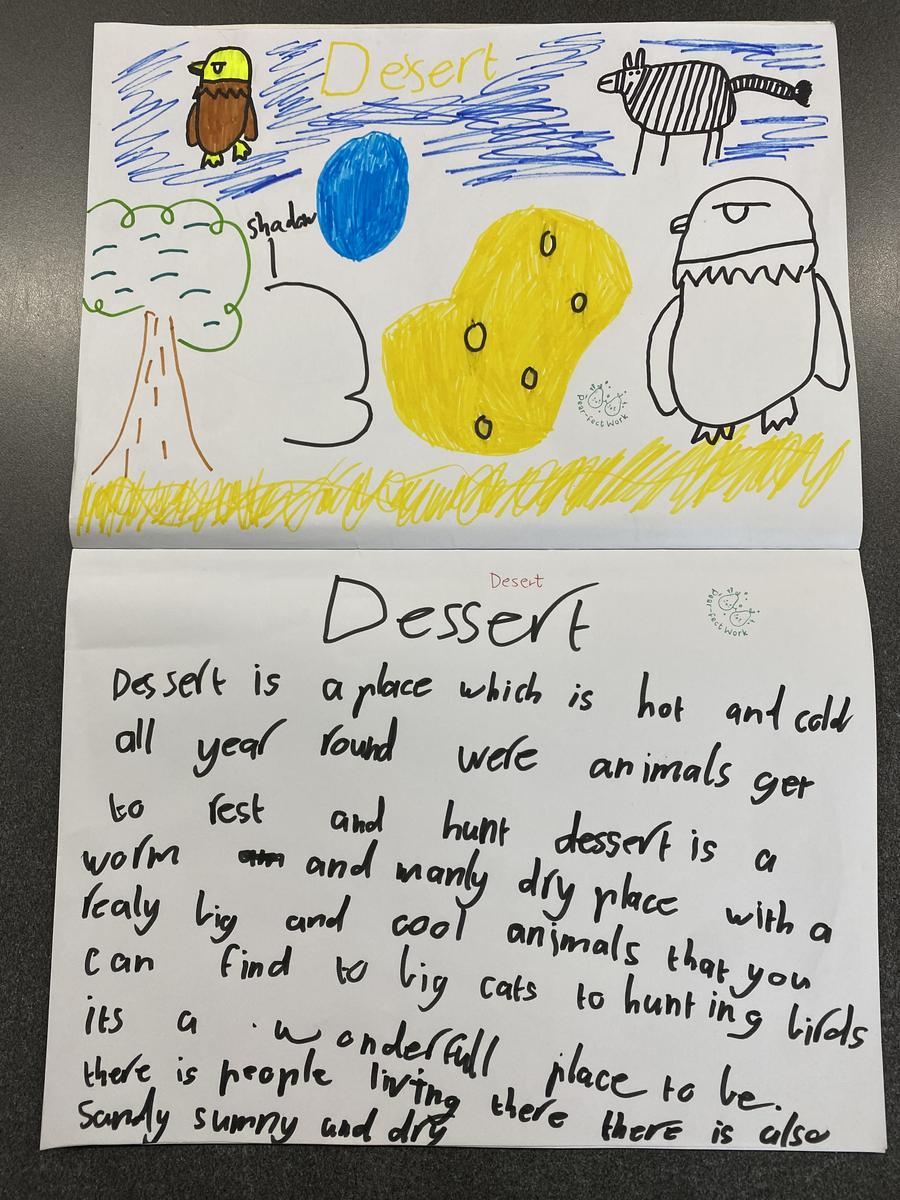 Desert
shadow
Pear-fect Work
Desert
Dessert
Pear-fect Work
Dessert is a place which is hot and cold
all year round were animals get
to rest and hunt dessert is a
worm and manly dry place with a
realy big and cool animals that you
can find to big cats to hunting birds
its a wonderfull place to be.
there is people living there there is also
Sandy sunny and dry